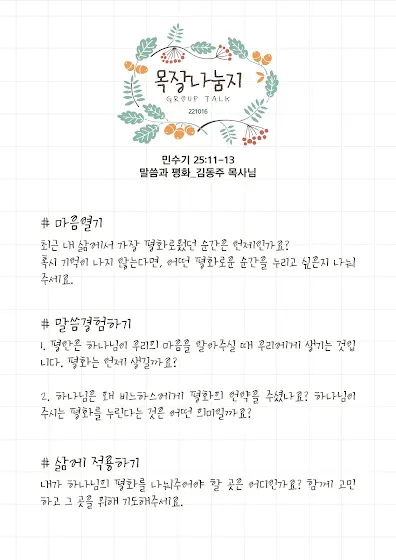 목장나눔지
GROUP TALK
221016
민수기 25:11-13
말씀과 평화_김동주 목사님
# 마음열기
최근 내 삶에서 가장 평화로웠던 순간은 언제인가요?
혹시 기억이 나지 않는다면, 어떤 평화로운 순간을 누리고 싶은지 나눠
주세요.
# 말씀경험하기
1. 평안은 하나님이 우리의 마음을 알아주실 때 우리에게 생기는 것입
니다. 평화는 언제 생길까요?
2. 하나님은 왜 비느하스에게 평화의 언약을 주셨나요? 하나님이
주시는 평화를 누린다는 것은 어떤 의미일까요?
# 삶에 적용하기
내가 하나님의 평화를 나눠주어야 할 곳은 어디인가요? 함께 고민
하고 그 곳을 위해 기도해주세요.